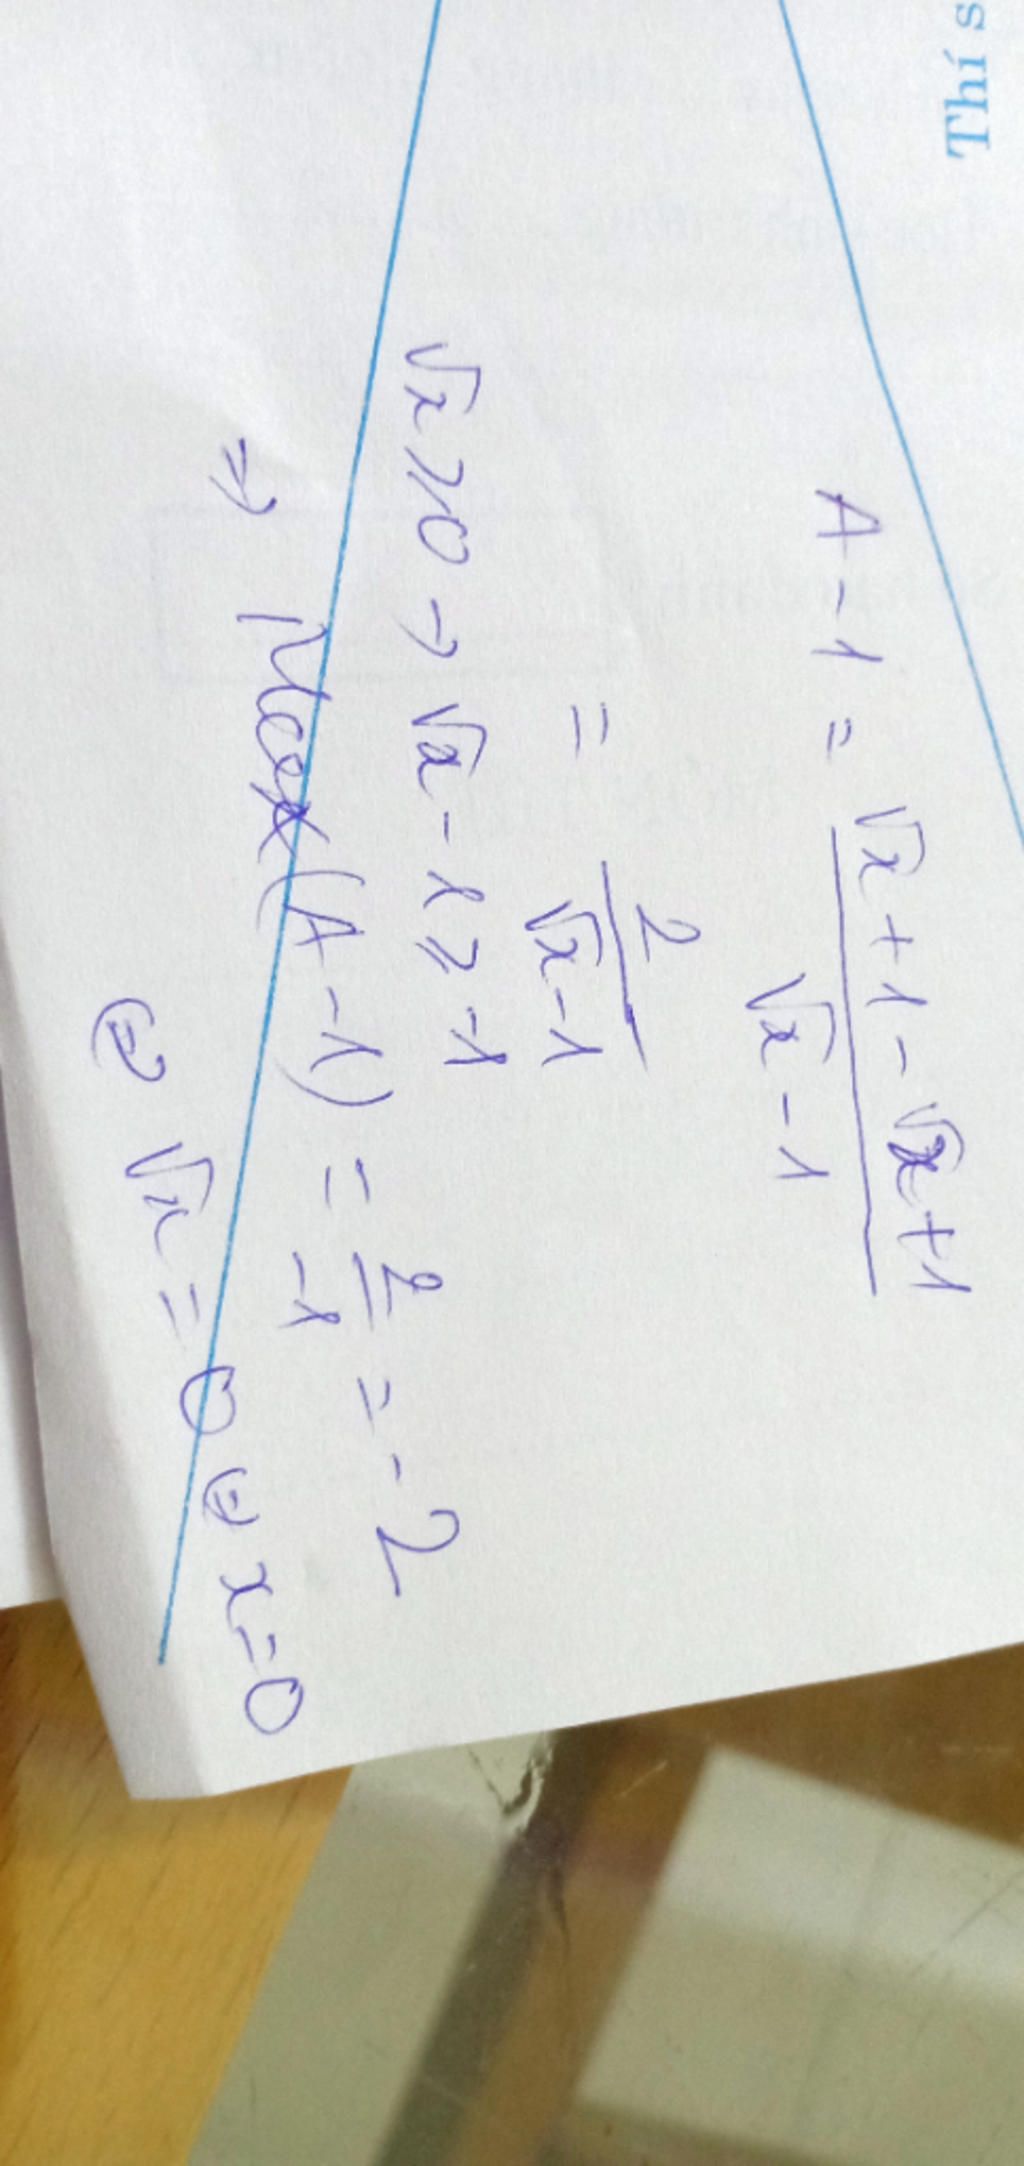 Thí s
A - 1 = \frac{\sqrt{x} + 1 - \sqrt{x} + 1}{\sqrt{x} - 1}
= \frac{2}{\sqrt{x} - 1}
\sqrt{x} ≥ 0 → \sqrt{x} - 1 ≥ -1
⇒ Max (A - 1) = \frac{2}{-1} = -2
⇔ \sqrt{x} = 0 ⇔ x = 0